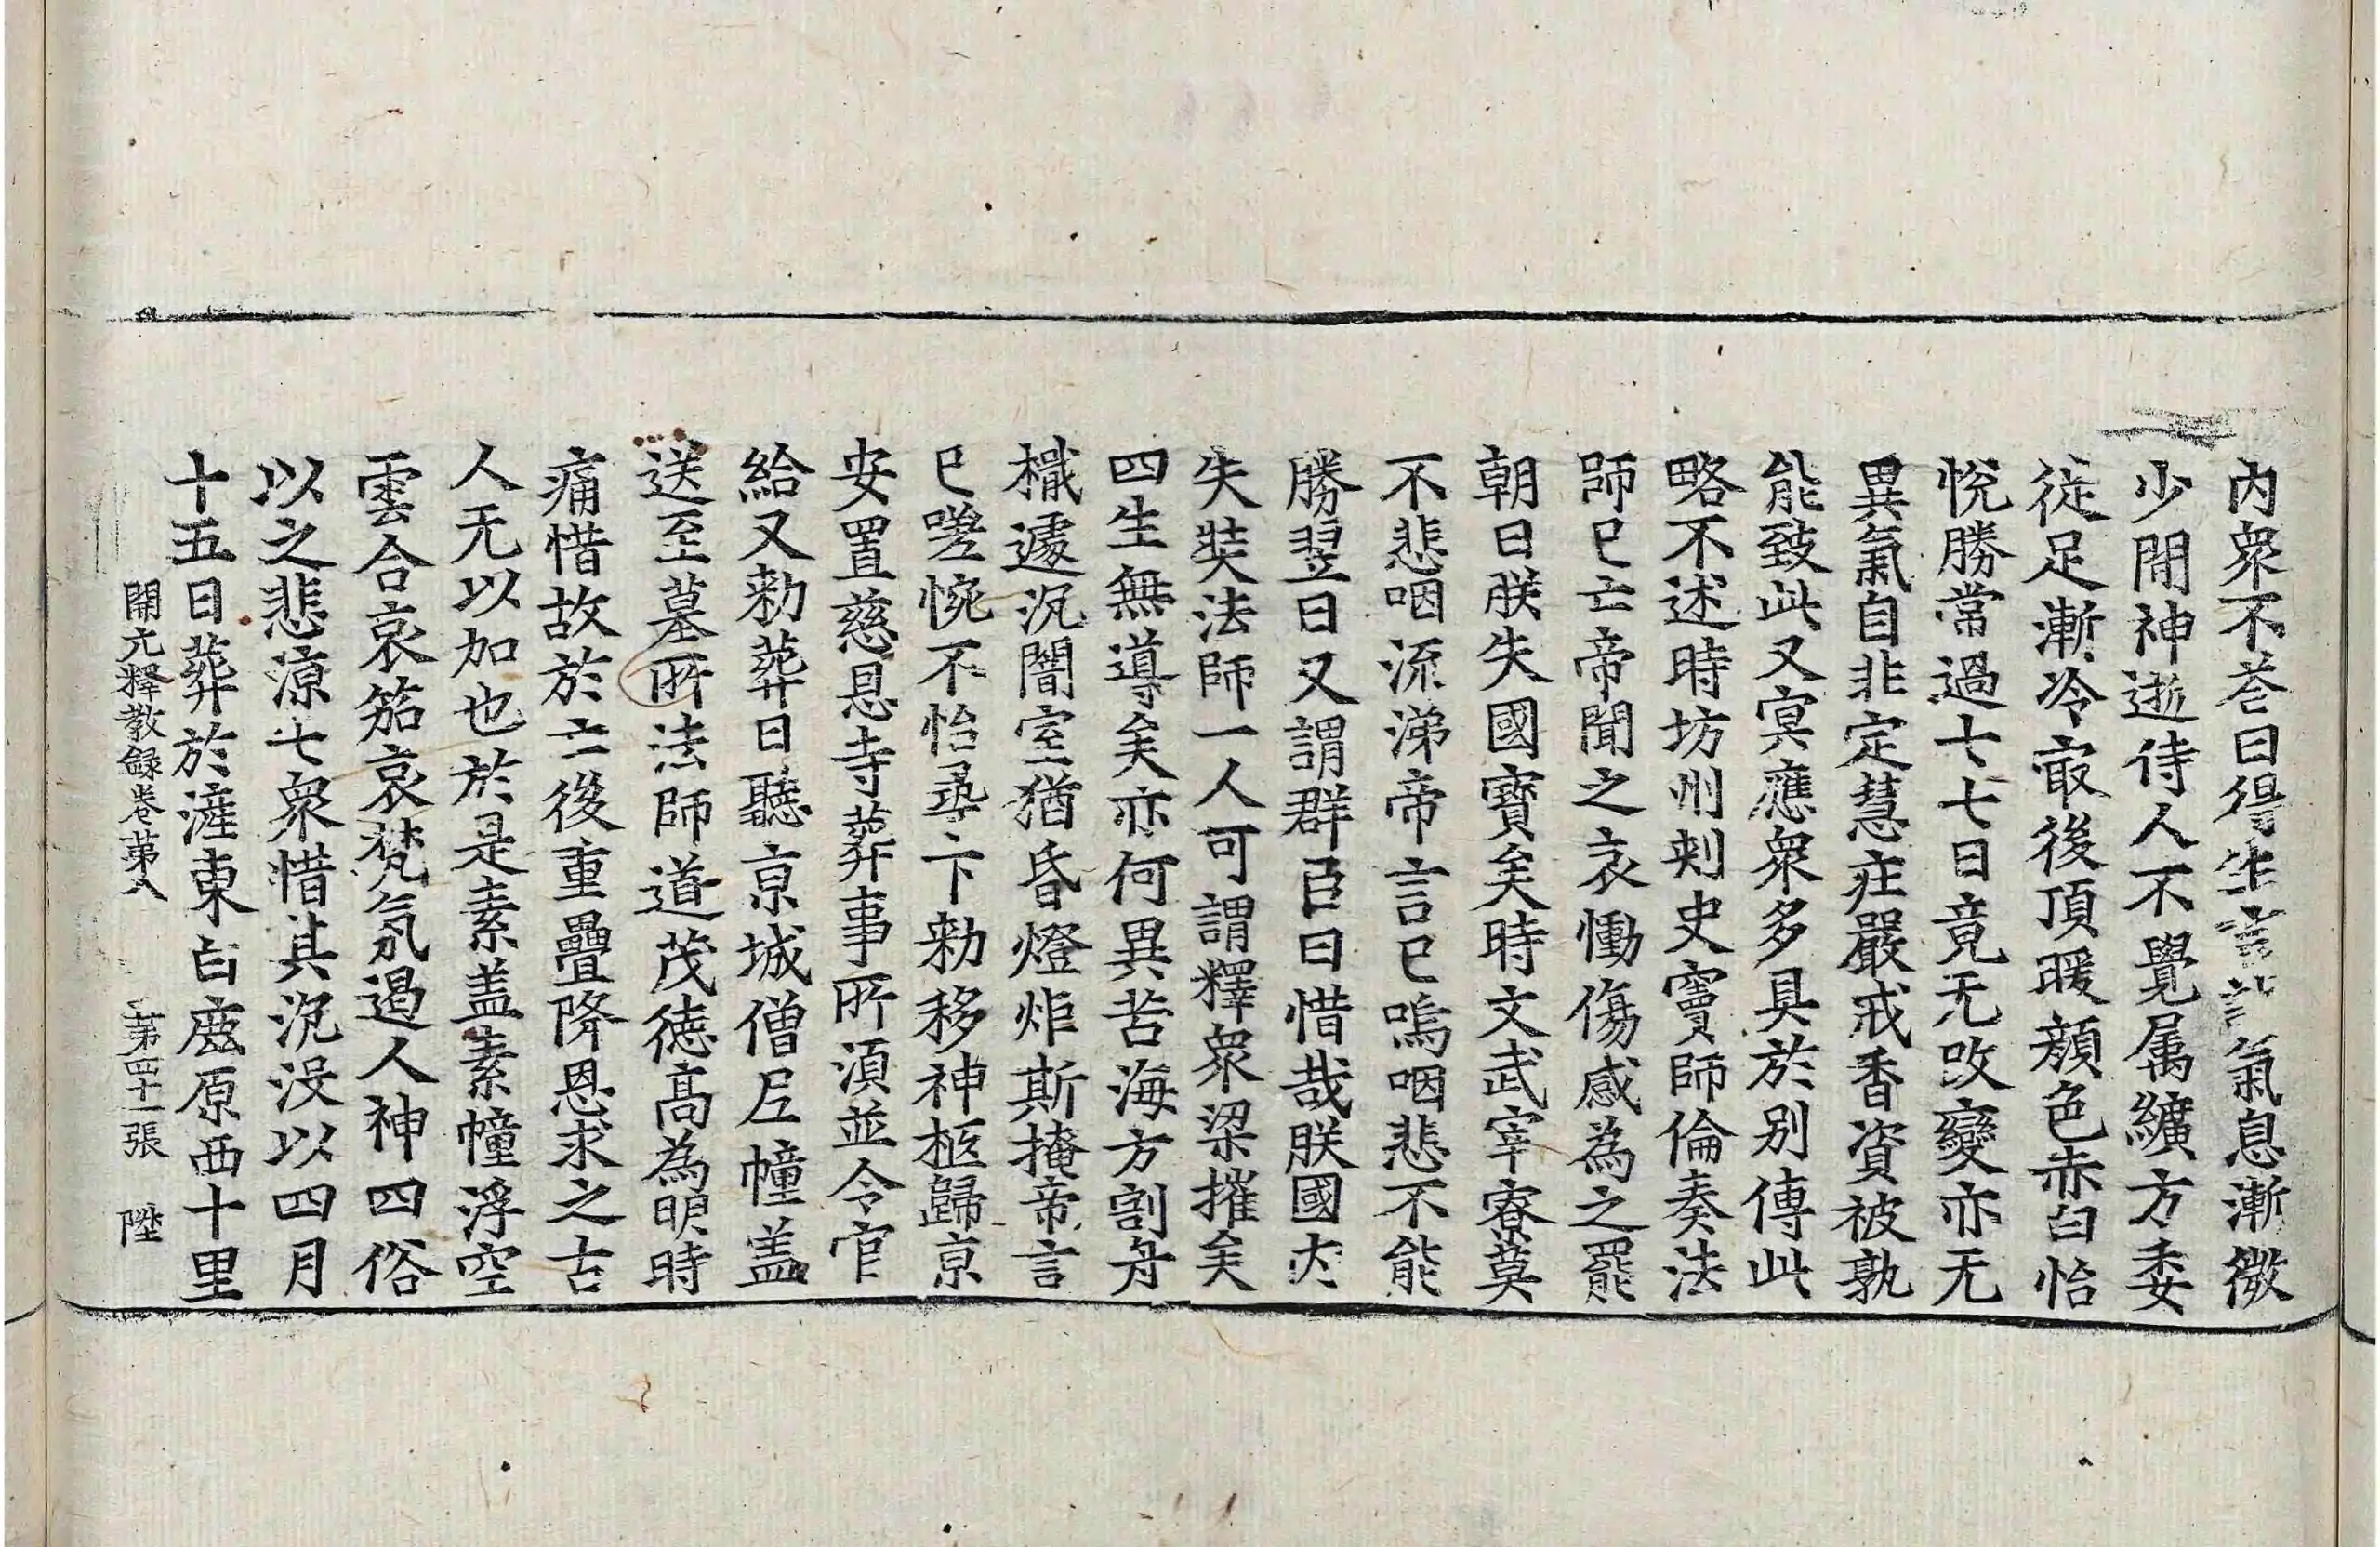 內衆不荅曰得生言訖氣息漸微
少閒神逝侍人不覺属纊方委
從足漸冷㝡後頂暖顔色赤白怡
悅勝常過七七日竟无改變亦无
異氣自非定慧庄嚴戒香資被孰
能致此又冥應衆多具於別傳此
略不述時坊州刺史竇師倫奏法
師已亡帝聞之哀慟傷感為之罷
朝曰朕失國寶矣時文武宰寮莫
不悲咽流涕帝言已嗚咽悲不能
勝翌日又謂群臣曰惜哉朕國內
失奘法師一人可謂釋衆梁摧矣
四生無導矣亦何異苦海方割舟
檝遽沉闇室猶昏燈炬斯掩帝言
已嗟惋不怡尋下勑移神柩歸京
安置慈恩寺葬事所須並令官
給又勑葬日聽京城僧尼幢盖
送至墓所法師道茂德高為明時
痛惜故於亡後重疊降恩求之古
人无以加也於是素盖素幢浮空
雲合哀笳哀梵氛遏人神四俗
以之悲凉七衆惜其沉没以四月
十五日葬於滻東白鹿原西十里
開元釋教録卷苐八 第四十一張 陞